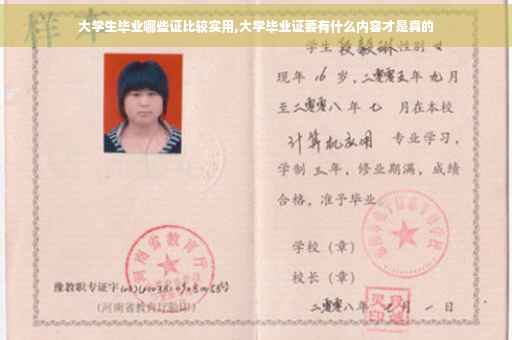 大学生毕业哪些证比较实用,大学毕业证要有什么内容才是真的
样本
学生 段毅琳 性别 女
现年 16 岁，二零零五年 九月
至二零零八年 七 月在本校
计算机应用 专业学习，
学制 三 年，修业期满，成绩
合格，准予毕业
学校（章）
校长（章）
二零零八年 七 月 一 日
河南省教育厅
豫教职专证字
（河南省教育厅验印）